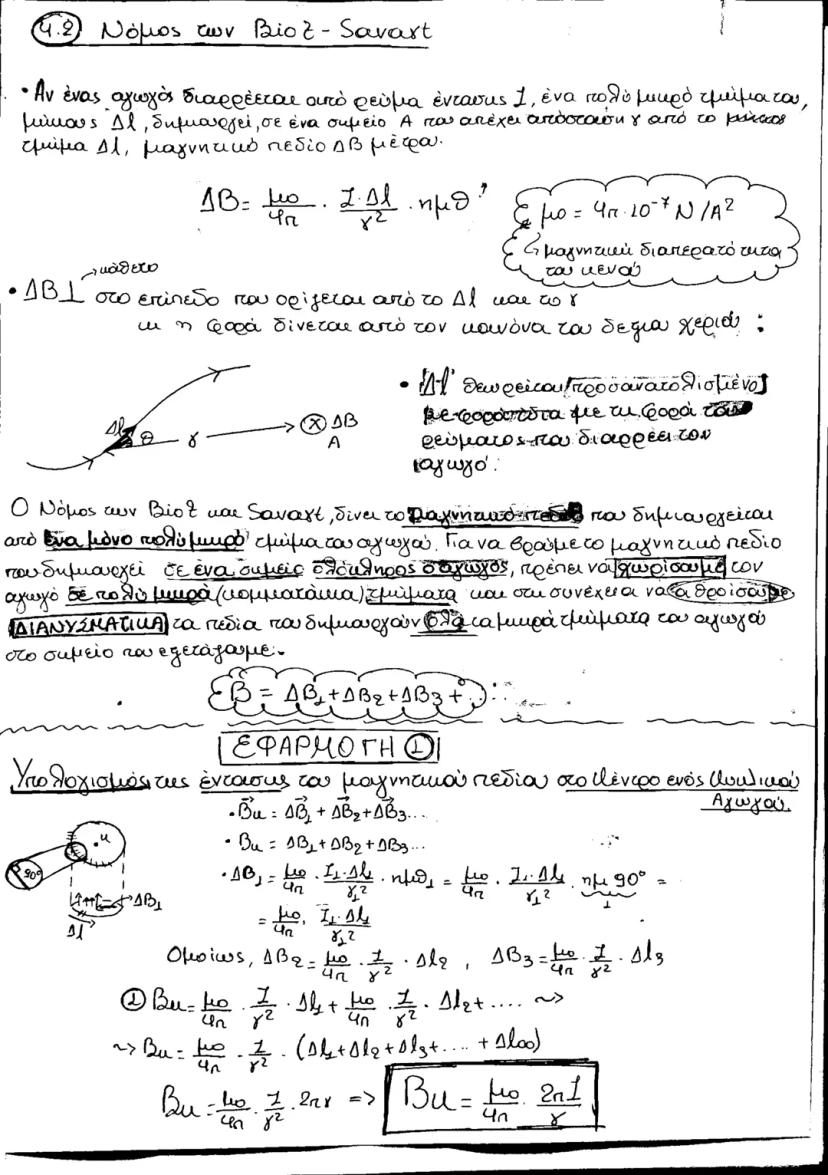 4.2 Νόμος των Biot - Savart
• Αν ένας αγωγός διαρρέεται από ρεύμα έντασης I, ένα πολύ μικρό τμήμα του,
μήκους Δl, δημιουργεί, σε ένα σημείο A που απέχει απόσταση r από το
τμήμα Δl, μαγνητικό πεδίο ΔB μέτρα.
ΔB = μο/4π · I·Δl/r² · ημθ
μο = 4π·10⁻⁷ N/A²
↳ μαγνητική διαπερατότητα
του κενού
→ κάθετο
• ΔB⊥ στο επίπεδο που ορίζεται από το Δl και το r
κι η φορά δίνεται από τον κανόνα του δεξιά χεριού :
• Δl θεωρείται προσανατολισμένο
με φορά την φορά του
ρεύματος που διαρρέει τον
αγωγό.
Δl θ r ⊗ ΔB
A
Ο Νόμος των Biot και Savart, δίνει το μαγνητικό πεδίο που δημιουργείται
από ένα μόνο πολύ μικρό τμήμα του αγωγού. Για να βρούμε το μαγνητικό πεδίο
που δημιουργεί σε ένα σημείο ολόκληρος ο αγωγός, πρέπει να χωρίσουμε τον
αγωγό σε πολύ μικρά (κομματάκια) τμήματα και στη συνέχεια να αθροίσουμε
ΔΙΑΝΥΣΜΑΤΙΚΑ τα πεδία που δημιουργούν όλα τα μικρά τμήματα του αγωγού
στο σημείο που εξετάζουμε.
B = ΔB₁+ΔB₂+ΔB₃+...
ΕΦΑΡΜΟΓΗ ①
Υπολογισμός της έντασης του μαγνητικού πεδίου στο Κέντρο ενός Κυκλικού
Αγωγού.
• B⃗κ = ΔB⃗₁ + ΔB⃗₂+ΔB⃗₃...
• Bκ = ΔB₁+ΔB₂+ΔB₃...
κ
90°
ΔB₁
Δl
• ΔB₁ = μο/4π · I₁·Δl₁/r₁² · ημθ₁ = μο/4π · I₁·Δl₁/r₁² · ημ90° =
1
= μο/4π · I₁·Δl₁/r₁²
Ομοίως, ΔB₂ = μο/4π · I/r² · Δl₂ , ΔB₃ = μο/4π · I/r² · Δl₃
① Bκ = μο/4π · I/r² · Δl₁ + μο/4π · I/r² · Δl₂+.... ~>
~> Bκ = μο/4π · I/r² · (Δl₁+Δl₂+Δl₃+.... +Δl∞)
Bκ = μο/4π · I/r² · 2πr => Bκ = μο/4π · 2πI/r